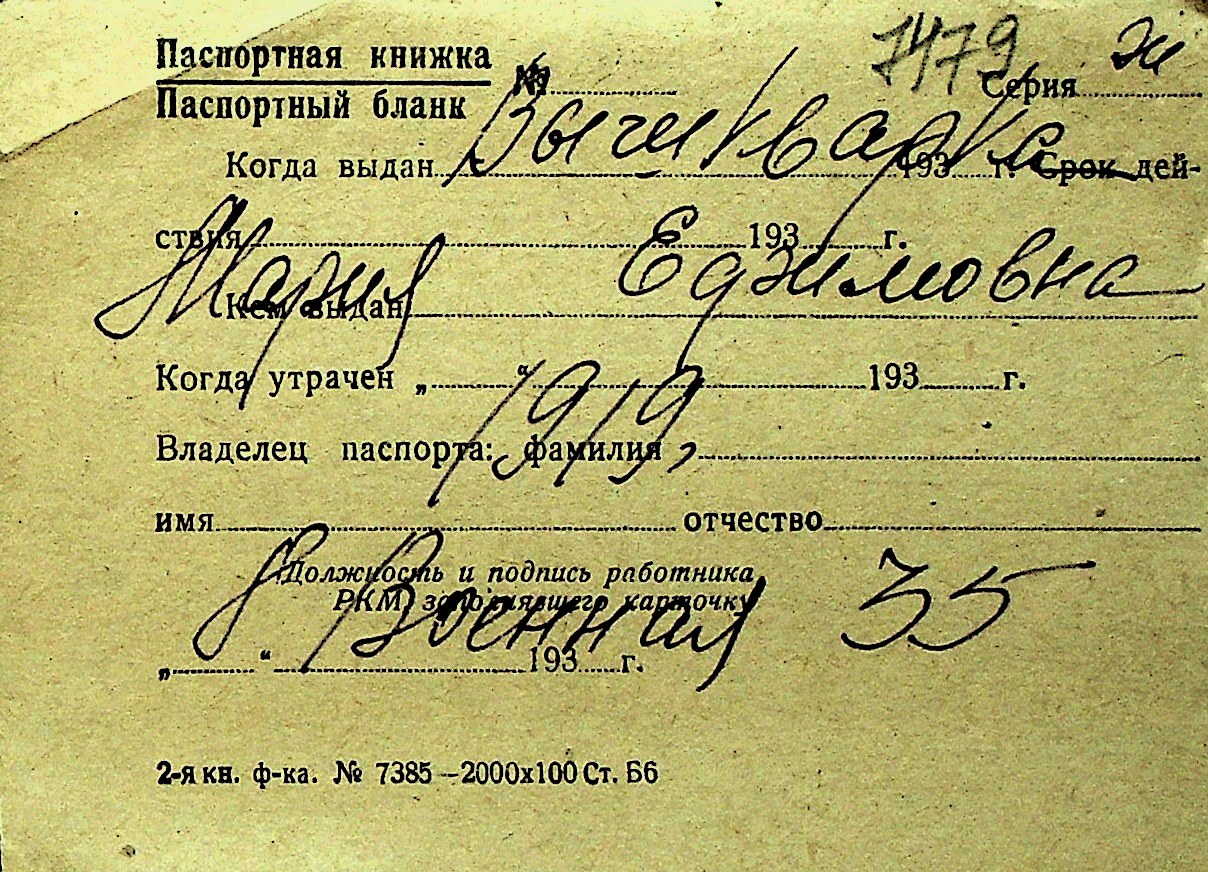 Паспортная книжка
Паспортный бланк № Серия
1479
Когда выдан 193 г. Срок дей-
ствия 193 г.
Мария
Кем выдан
Когда утрачен „ “ 193 г.
1919
Владелец паспорта: фамилия
имя отчество
Должность и подпись работника
РКМ, заполнявшего карточку
Военная 35
„ “ 193 г.
2-я кн. ф-ка. № 7385 —2000х100 Ст. Б6